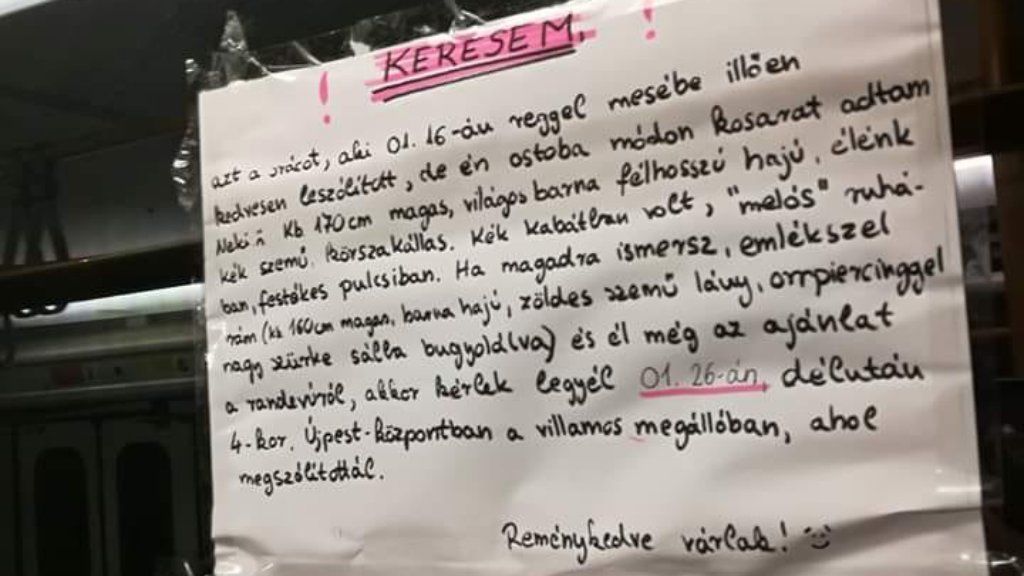 ! KERESEM. !
azt a srácot, aki 01. 16-án reggel mesébe illően
kedvesen leszólított, de én ostoba módon kosarat adtam
Neki Kb 170cm magas, világos barna félhosszú hajú, élénk
kék szemű, körszakállas. Kék kabátban volt, "melós" ruhá-
ban, festékes pulcsiban. Ha magadra ismersz, emlékszel
rám (kb 160cm magas, barna hajú, zöldes szemű lány, orrpiercinggel
nagy szürke sálba bugyolálva) és él még az ajánlat
a randevúról, akkor kérlek legyél 01. 26-án, délután
4-kor. Újpest-központban a villamos megállóban, ahol
megszólítottál.
Reménykedve várlak!